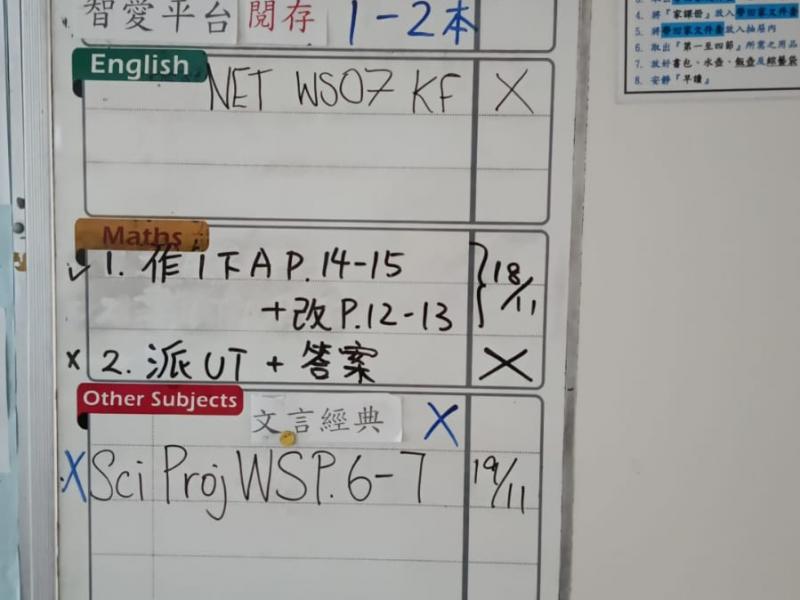 智愛平台 閱存 1-2本
English
NET WS07 KF X
Maths
✓ 1. 作1下A P.14-15
+改P.12-13 } 18/11
x 2. 派UT + 答案 X
Other Subjects 文言經典 X
X Sci Proj WSP.6-7 19/11
4. 將『家課冊』放入帶回家文件盒
5. 將帶回家文件盒放入抽屜內
6. 取出『第一至四節』所需之用品
7. 放好書包、水壺、飯壺及綜藝袋
8. 安靜『早讀』